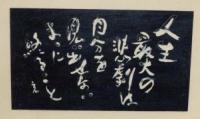 人生
最大の
悲劇は
自分を
見出せない
まゝに
終ること